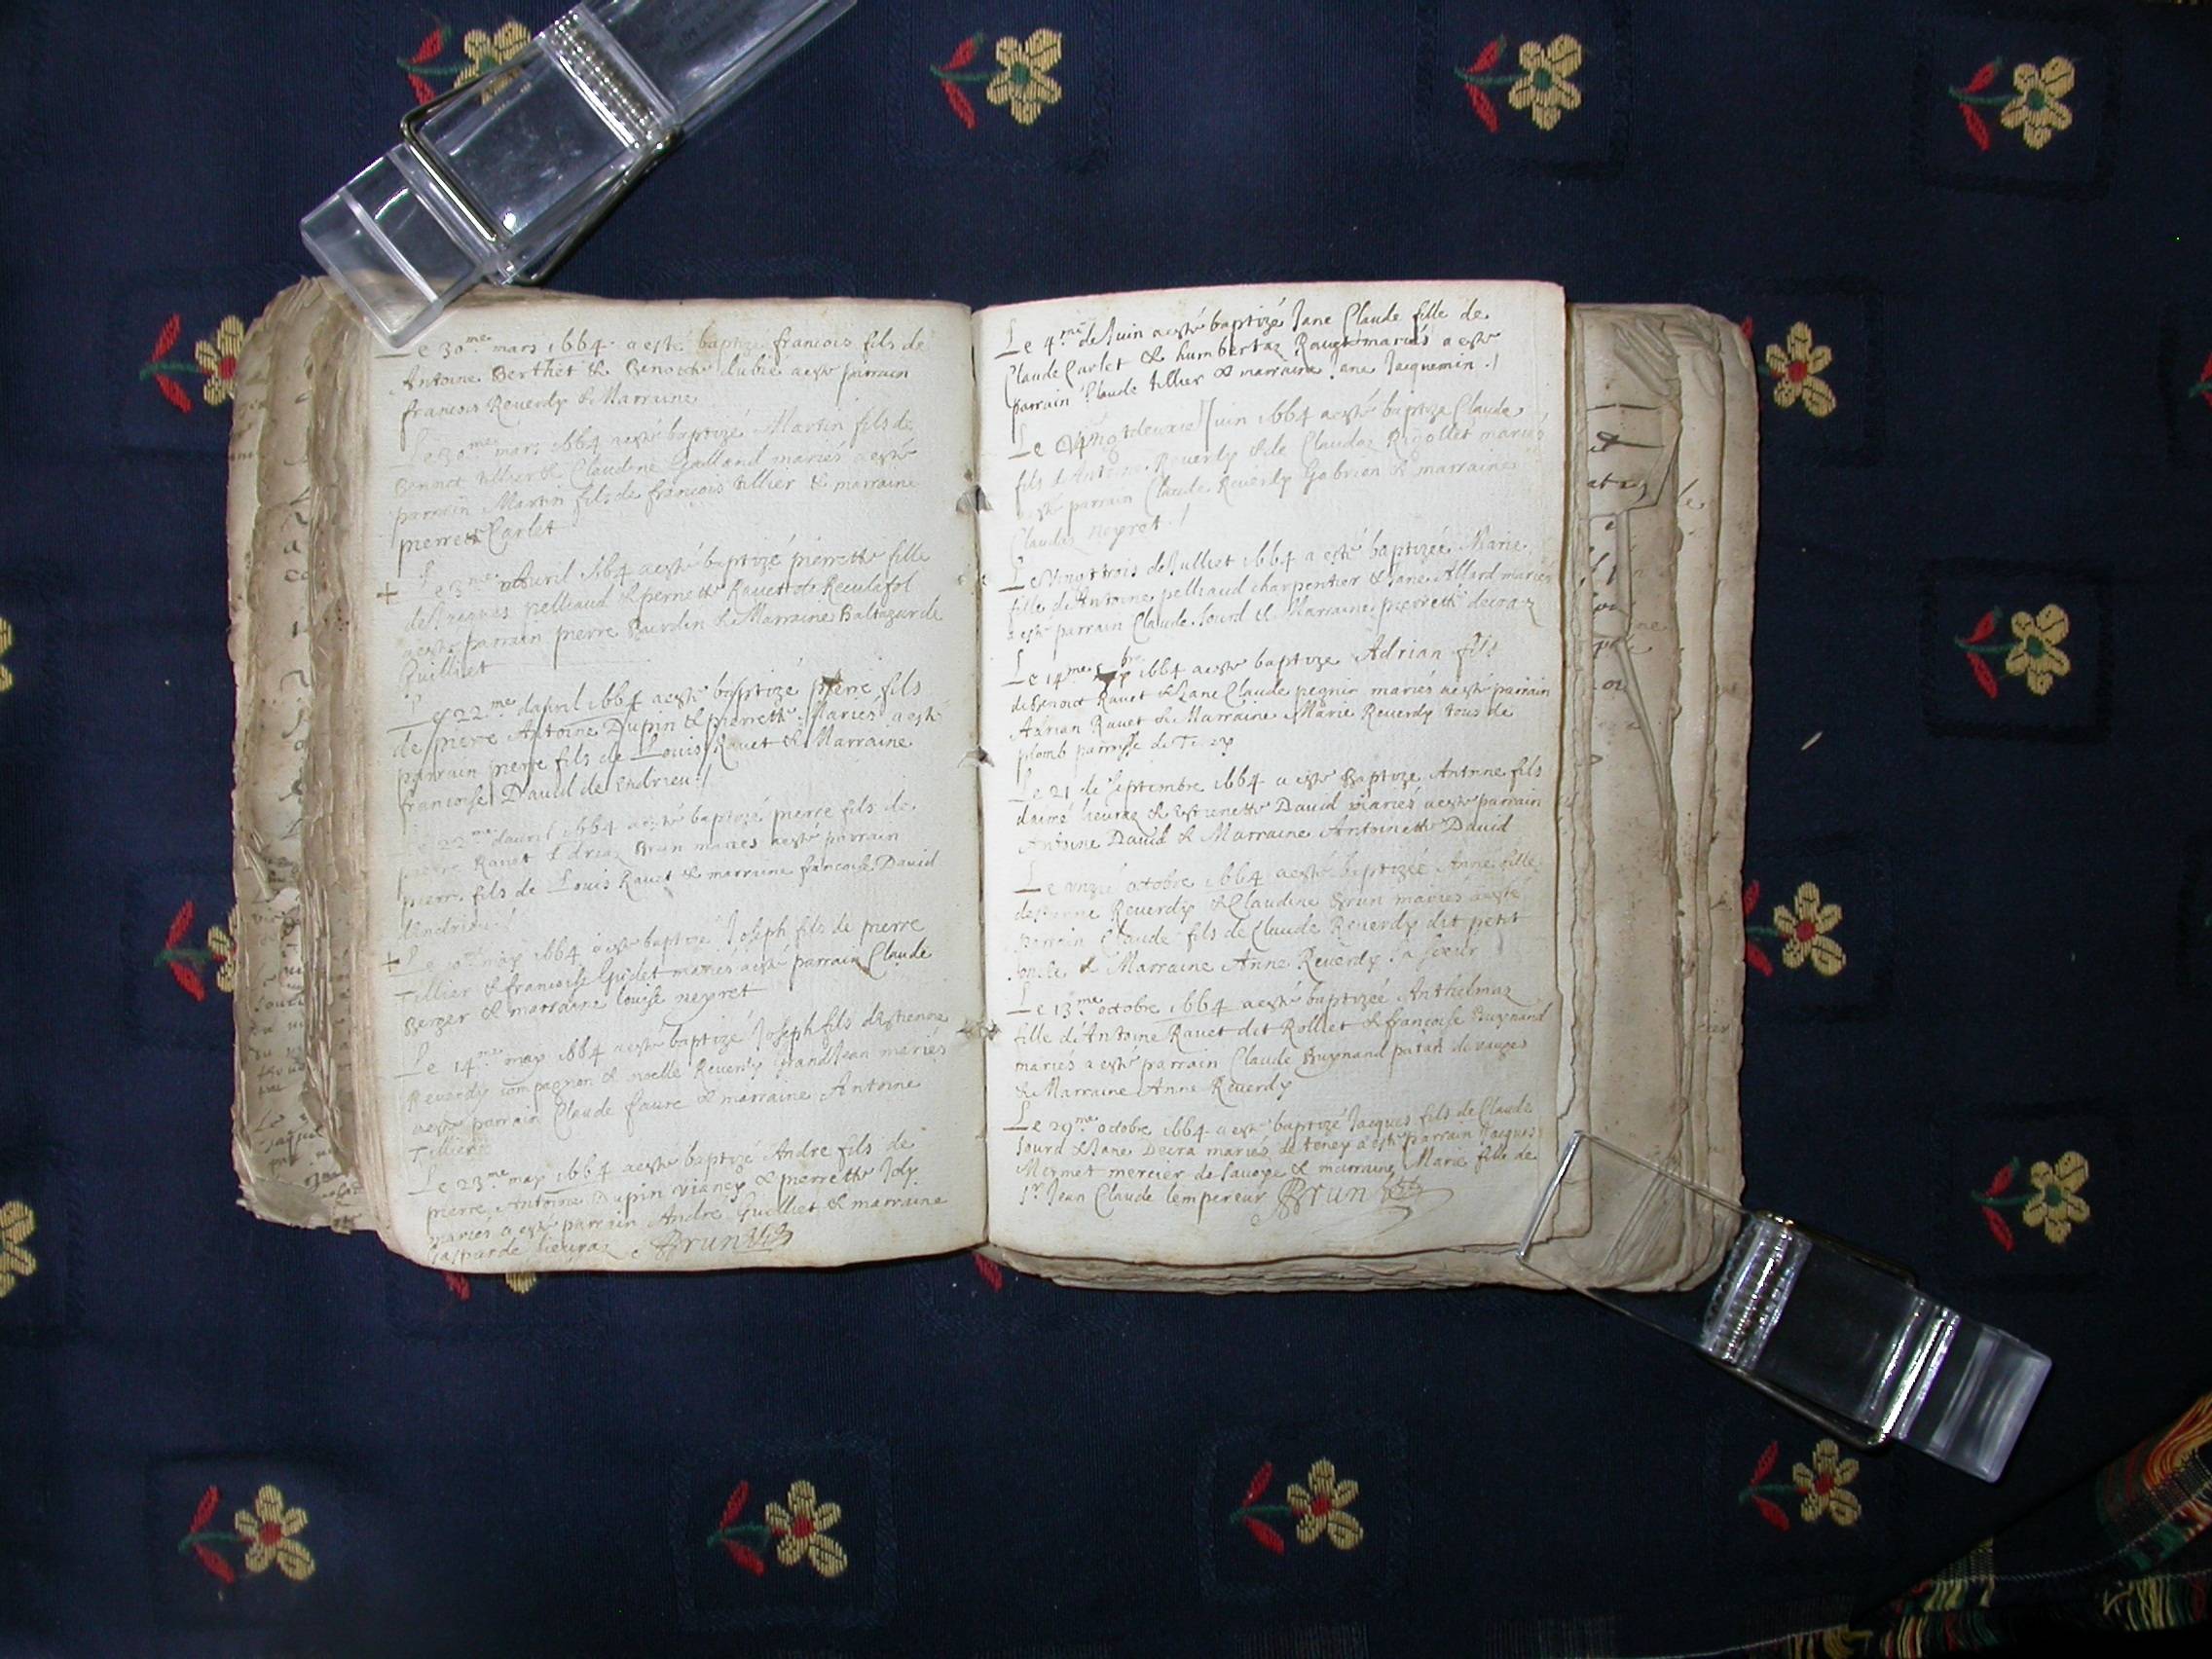 Le 30me mars 1664 a esté baptizé francois fils de
Antoine Berthet & Benoitte dubié a esté parrain
francois Reuerdy & Marraine
Le 30me mars 1664 a esté baptizé Martin fils de
Bennoit tillier & Claudine Galland mariés a esté
parrain Martin fils de francois tillier & marraine
pierrette Carlet
+ Le 3me Auril 1664 a esté baptizé pierrette fille
de Jacques pelliaud & pernette Rauet de Reculafol
a esté parrain pierre & Marraine Baltazarde
Quilliet
Le 22me dapuril 1664 a esté baptizé pierre fils
de piere Antoine Dupin & pierrette Mariés a esté
parrain pierre fils de Louis Rauet & Marraine
francoise Dauid de Endrieu ./
Le 22me dauril 1664 a esté baptizé pierre fils de
pierre Rauet & Brun mariés a esté parrain
pierre fils de Louis Rauet & marraine francoise Dauid
dendrieu ./
+ Le 10me may 1664 a esté baptizé Joseph fils de pierre
Tillier & francoise Guidet mariés a esté parrain Claude
Berger & marraine louise neyret
Le 14me may 1664 a esté baptizé Joseph fils dEstienne
Reuerdy compagnon & noelle Reuerdy GrandJean mariés
a esté parrain Claude faure & marraine Antoine
Tilliere
Le 23me may 1664 a esté baptizé Andre fils de
pierre Antoine Dupin viancy & pierrette Joly
mariés a esté parrain André Guilliet & marraine
Gasparde heuraz Brun
Le 4me de Juin a esté baptizé Jane Claude fille de
Claude Carlet & humbertaz Rauet mariés a esté
parrain Claude tillier & marraine Jane Jacquemin ./
Le Vingtdeuxie Juin 1664 a esté baptizé Claude
fils d Antoine Reuerdy & de Claudaz Rigollet mariés
a esté parrain Claude Reuerdy Gabrien & marraines
Claudaz neyret ./
Le Vingttrois de Julliet 1664 a esté baptizée Marie
fille de Antoine pelliaud charpentier & Jane Allard mariés
a esté parrain Claude Sourd & Marraine pierrette decraz
Le 14me 1664 a esté baptizé Adrian fils
de Benoict Rauet & Jane Claude pegnin mariés a esté parrain
Adrian Rauet & Marraine Marie Reuerdy tous de
plomb parroisse de Teney
Le 21 de Septembre 1664 a esté Baptizé Antoine fils
daimé heuraz & Estienette Dauid mariés a esté parrain
Antoine Dauid & Marraine Antoinette Dauid
Le unzie octobre 1664 a esté baptizée Anne fille
destienne Reuerdy & Claudine Brun mariés a esté
parrain Claude fils de Claude Reuerdy dit petit
& Marraine Anne Reuerdy sa soeur
Le 13me octobre 1664 a esté baptizée Anthelmaz
fille d'Antoine Rauet dit Rolliet & francoise Buynand
mariés a esté parrain Claude Buynand patan de vauges
& Marraine Anne Reuerdy
Le 29me octobre 1664 a esté baptizé Jacques fils de Claude
Sourd & Jane Decra mariés de teney a esté parrain Jacques
Mermet mercier de sauoye & marraine Marie fille de
Sr Jean Claude lempereur Brun